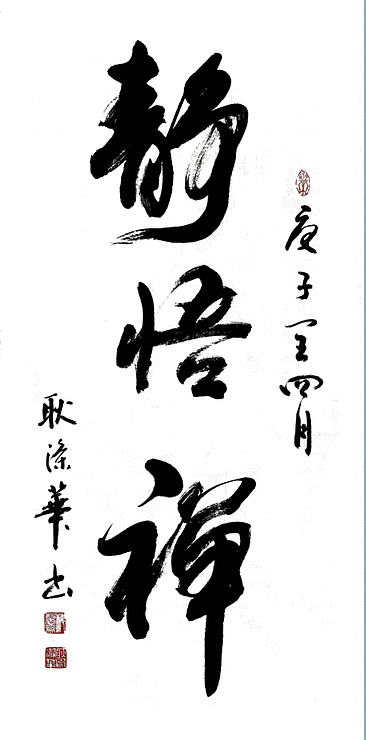 庚子闰四月
静悟禅
耿涤華书